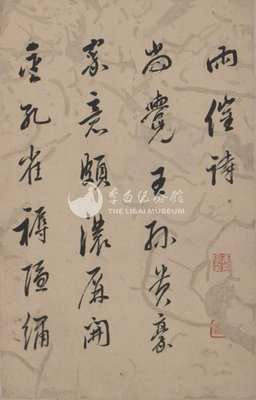 雨催詩
尚覺王孫貴豪
家意頗濃屏開
金孔雀褥隱繡
李白纪念馆
THE LIBAI MUSEUM